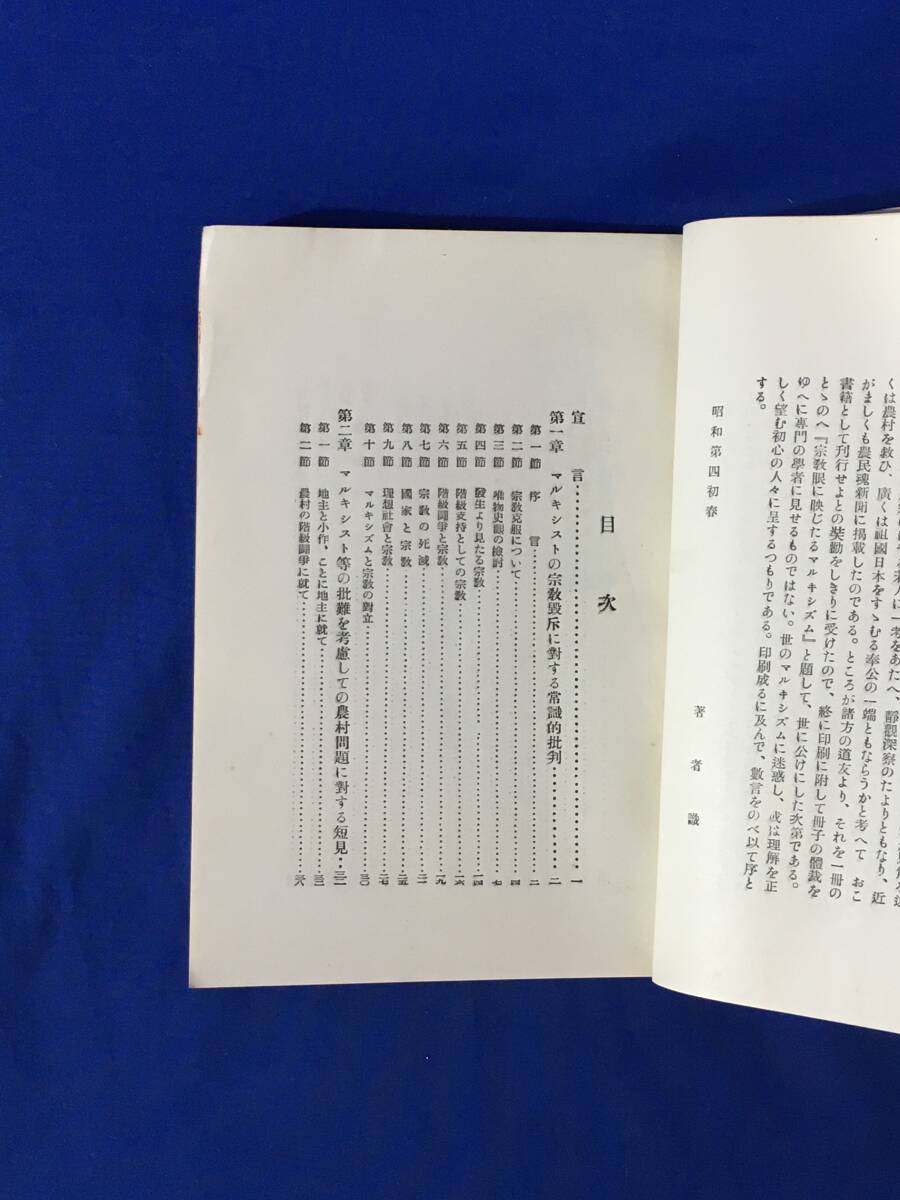 くは農村を救ひ、廣くは祖國日本をすゝむる奉公の一端ともならうかと考へて　おこ
がましくも農民魂新聞に掲載したのである。ところが諸方の道友より、それを一冊の
書籍として刊行せよとの奬勸をしきりに受けたので、終に印刷に附して冊子の體裁を
とゝのへ『宗敎眼に映じたるマルキシズム』と題して、世に公けにした次第である。
ゆへに專門の學者に見せるものではない。世のマルキシズムに迷惑し、或は理解を正
しく望む初心の人々に呈するつもりである。印刷成るに及んで、數言をのべ以て序と
する。
昭和第四初春
著者識
目次
宣言………一
第一章　マルキシストの宗敎毀斥に對する常識的批判………二
第一節　序言………二
第二節　宗敎克服について………四
第三節　唯物史觀の檢討………七
第四節　發生より見たる宗敎………一四
第五節　階級支持としての宗敎………一六
第六節　階級鬪爭と宗敎………一九
第七節　宗敎の死滅………二一
第八節　國家と宗敎………二五
第九節　理想社會と宗敎………二七
第十節　マルキシズムと宗敎の對立………三〇
第二章　マルキシスト等の批難を考慮しての農村問題に對する短見………三二
第一節　地主と小作、ことに地主に就て………三二
第二節　農村の階級鬪爭に就て………三六